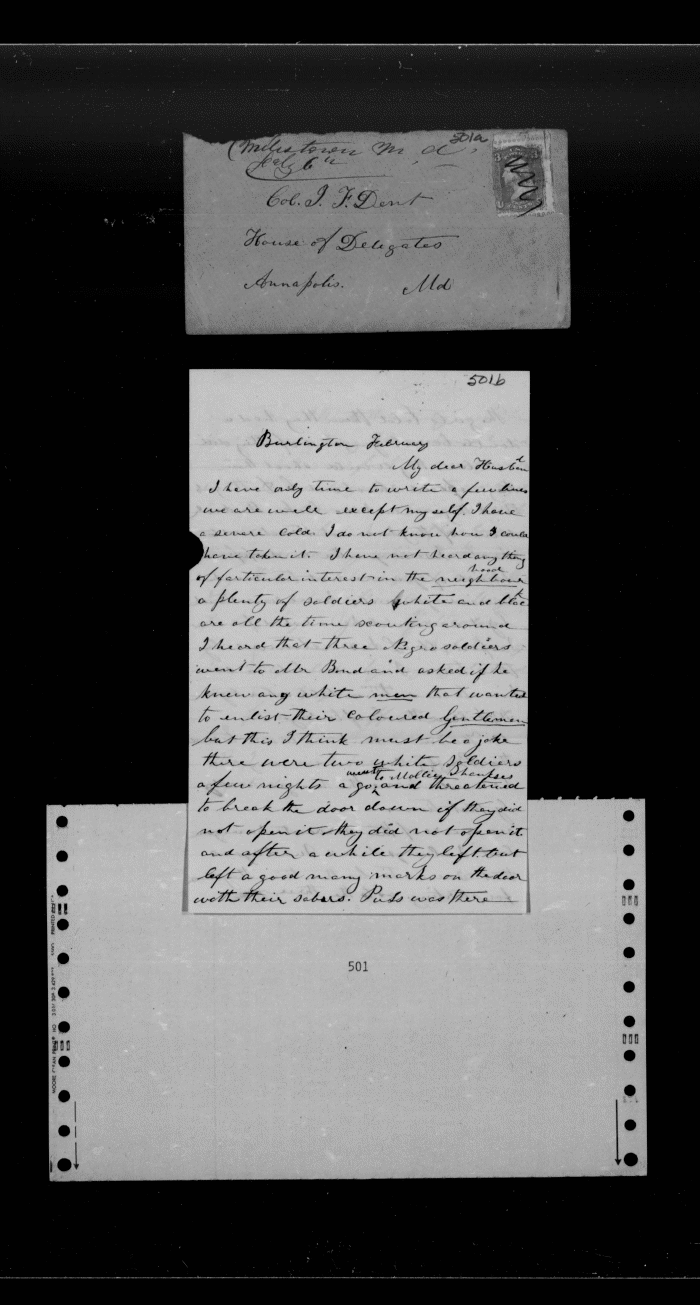 501a
Milestown M d.
Feb 6th
Col. J. F. Dent
House of Delegates
Annapolis. Md
501b
Burlington February
My dear Husband
I have only time to write a few lines
we are well except myself. I have
a severe cold. I do not know how I could
have taken it. I have not heard any thing
of particular interest in the neighbour
hood
a plenty of soldiers white and blac
k
are all the time scouting around
I heard that three Negro soldiers
went to Mr Bond and asked if he
knew any white men that wanted
to enlist their coloured Gentlemen
but this I think must be a joke
there were two white soldiers
went to Mollie Sharpses
a few nights a go, and threatened
to break the door down if they did
not open it they did not open it
and after a while they left but
left a good many marks on the door
with their sabers. Puss was there
501